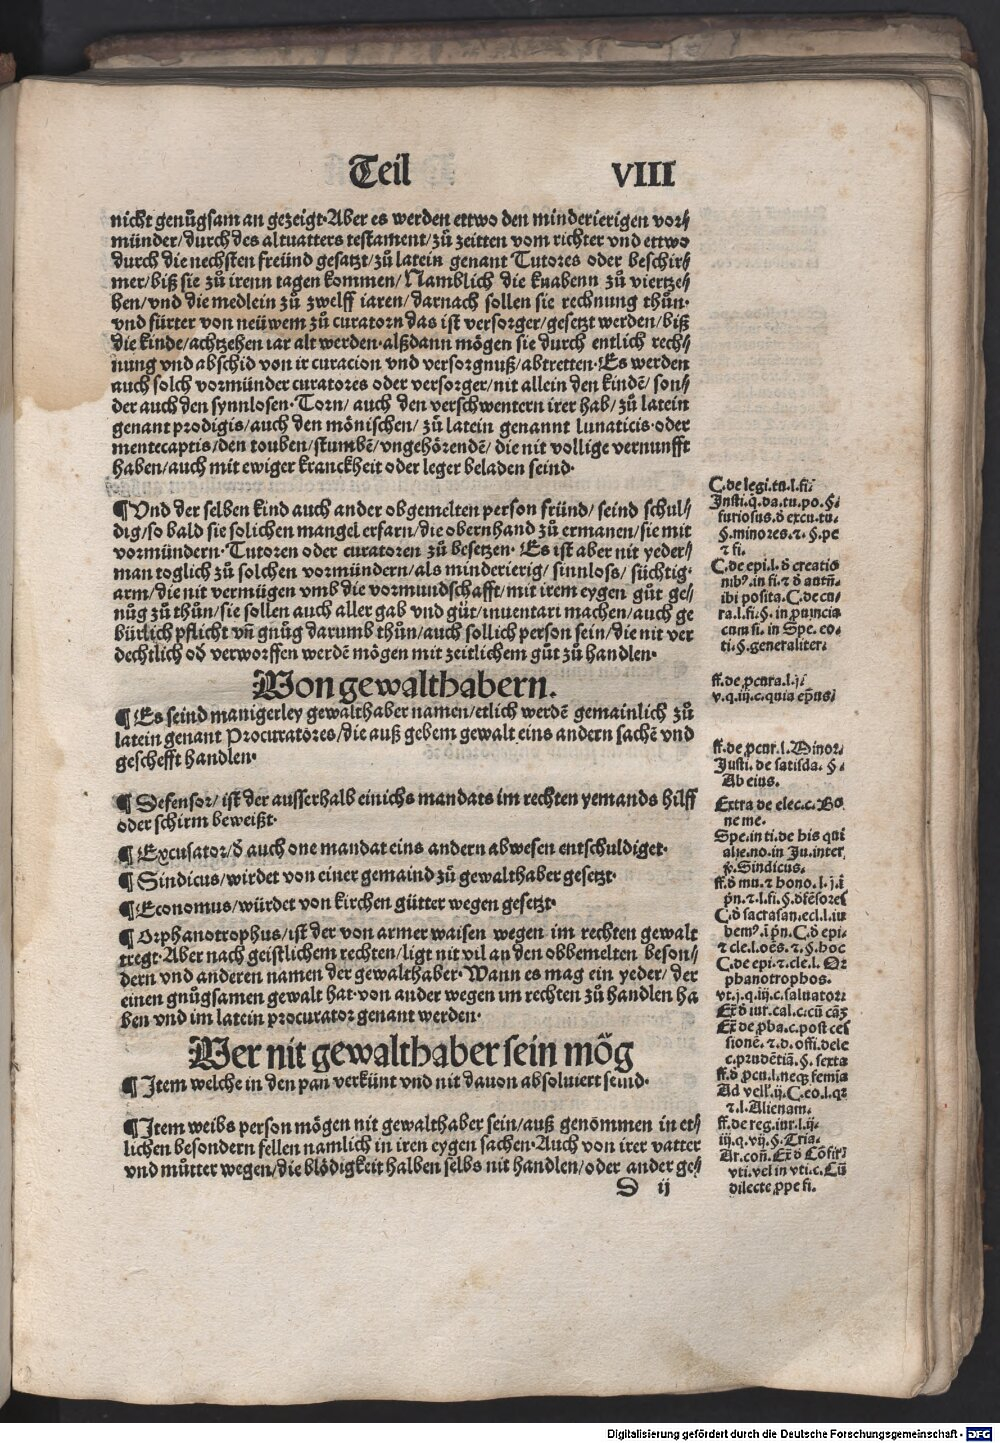 Teil VIII
nicht genůgsam an gezeigt·Aber es werden ettwo den minderierigen vor⸗
münder/durch des altuatters testament/zů zeitten vom richter vnd ettwo
durch die nechsten freünd gesatzt/zů latein genant Tutores oder beschir⸗
mer/biß sie zů irenn tagen kommen/Namblich die knabenn zů viertze⸗
hen/vnd die medlein zů zwelff iaren/darnach sollen sie rechnung thůn·
vnd fürter von neüwem zů curatorn das ist versorger/gesetzt werden/biß
die kinde/achtzehen iar alt werden·alßdann mögen sie durch entlich rech⸗
nung vnd abschid von ir curacion vnd versorgnuß/abtretten·Es werden
auch solch vormünder curatores oder versorger/nit allein den kindē/son⸗
der auch den synnlosen·Torn/auch den verschwentern irer hab/zů latein
genant prodigis/auch den mönischen/zů latein genannt lunaticis·oder
mentecaptis/den touben/stumbē/vngehörendē/die nit vollige vernunfft
haben/auch mit ewiger kranckheit oder leger beladen seind·
¶Vnd der selben kind auch ander obgemelten person fründ/seind schul⸗
dig/so bald sie solichen mangel erfarn/die obernhand zů ermanen/sie mit
vormündern·Tutoren oder curatoren zů besetzen· Es ist aber nit yeder⸗
man toglich zů solchen vormündern/als minderierig/sinnloss/süchtig·
arm/die nit vermügen vmb die vormundschafft/mit irem eygen gůt ge⸗
nůg zů thůn/sie sollen auch aller gab vnd gůt/inuentari machen/auch ge
bürlich pflicht vñ gnůg darumb thůn/auch sollich person sein/die nit ver
dechtlich oď verworffen werdē mögen mit zeitlichem gůt zů handlen·
Von gewalthabern.
¶Es seind manigerley gewalthaber namen/etlich werdē gemainlich zů
latein genant Procuratores/die auß gebem gewalt eins andern sachē vnd
geschefft handlen·
¶Defensor/ist der ausserhalb einichs mandats im rechten yemands hilff
oder schirm beweißt·
¶Excusator/ď auch one mandat eins andern abwesen entschuldiget·
¶Sindicus/wirdet von einer gemaind zů gewalthaber gesetzt·
¶Economus/würdet von kirchen gütter wegen gesetzt·
¶Orphanotrophus/ist der von armer waisen wegen im rechten gewalt
tregt·Aber nach geistlichem rechten/ligt nit vil an den obbemelten beson⸗
dern vnd anderen namen der gewalthaber·Wann es mag ein yeder/der
einen gnůgsamen gewalt hat·von ander wegen im rechten zů handlen ha
ben vnd im latein procurator genant werden·
Wer nit gewalthaber sein mög
¶Item welche in den pan verkünt vnd nit dauon absoluiert seind·
¶Item weibs person mögen nit gewalthaber sein/auß genommen in et⸗
lichen besondern fellen namlich in iren eygen sachen·Auch von irer vatter
vnd můtter wegen/die blödigkeit halben selbs nit handlen/oder ander ge⸗
D ij
C.de legi.tu.l.fi.
Insti.q̃.da.tu.po.§.
furiosus.ď excu.tu.
§.minores.⁊.§.pe
⁊ fi.
C.de epi.l.ď creatio
nibꝰ.in fi.⁊ ď autñ.
ibi posita.C.de cu⸗
ra.l.fi.§.in ꝓuincia
cum si.in Spe.eo.
ti.§.generaliter.
ff.de ꝓcura.l.j.
v.q.iij.c.quia ep̄us
ff.de ꝓcur.l.Minor.
Justi.de satisda.§.
Ab eius.
Extra de elec.c.Bo
ne me.
Spe.in ti.de his qui
alie.no.in Ju.inter
ꝟ.Sindicus.
ff.ď mu.⁊ hono.l.j.ī
pn̄.⁊ l.fi.§.defēsores
C.ď sacrasan.ecl.l.iu
bemꝰ.ī pn̄.C.ď epi.
⁊ cle.l.oēs.⁊.§.hoc
C.de epi.⁊ cle.l.Or
phanotrophos.
vt.j.q.iij.c.saluator.
Ex̄ ď iur.cal.c.cū cāꝫ
Ex̄ de ꝓba.c.post ces
sionē.⁊.d.offi.dele
c.prudētiā.§.sexta
ff.ď ꝓcu.l.neqꝫ femia
Ad vell'.ij.C.eo.l.qꝛ
⁊.l.Alienam.
ff.de reg.iur.l.ij.
iij.q.vij.§.Tria.
Ar.con̄.Ex̄ ď Cōfir.
vti.vel in vti.c.Cū
dilecte ꝓpe fi.
Digitalisierung gefördert durch die Deutsche Forschungsgemeinschaft - DFG